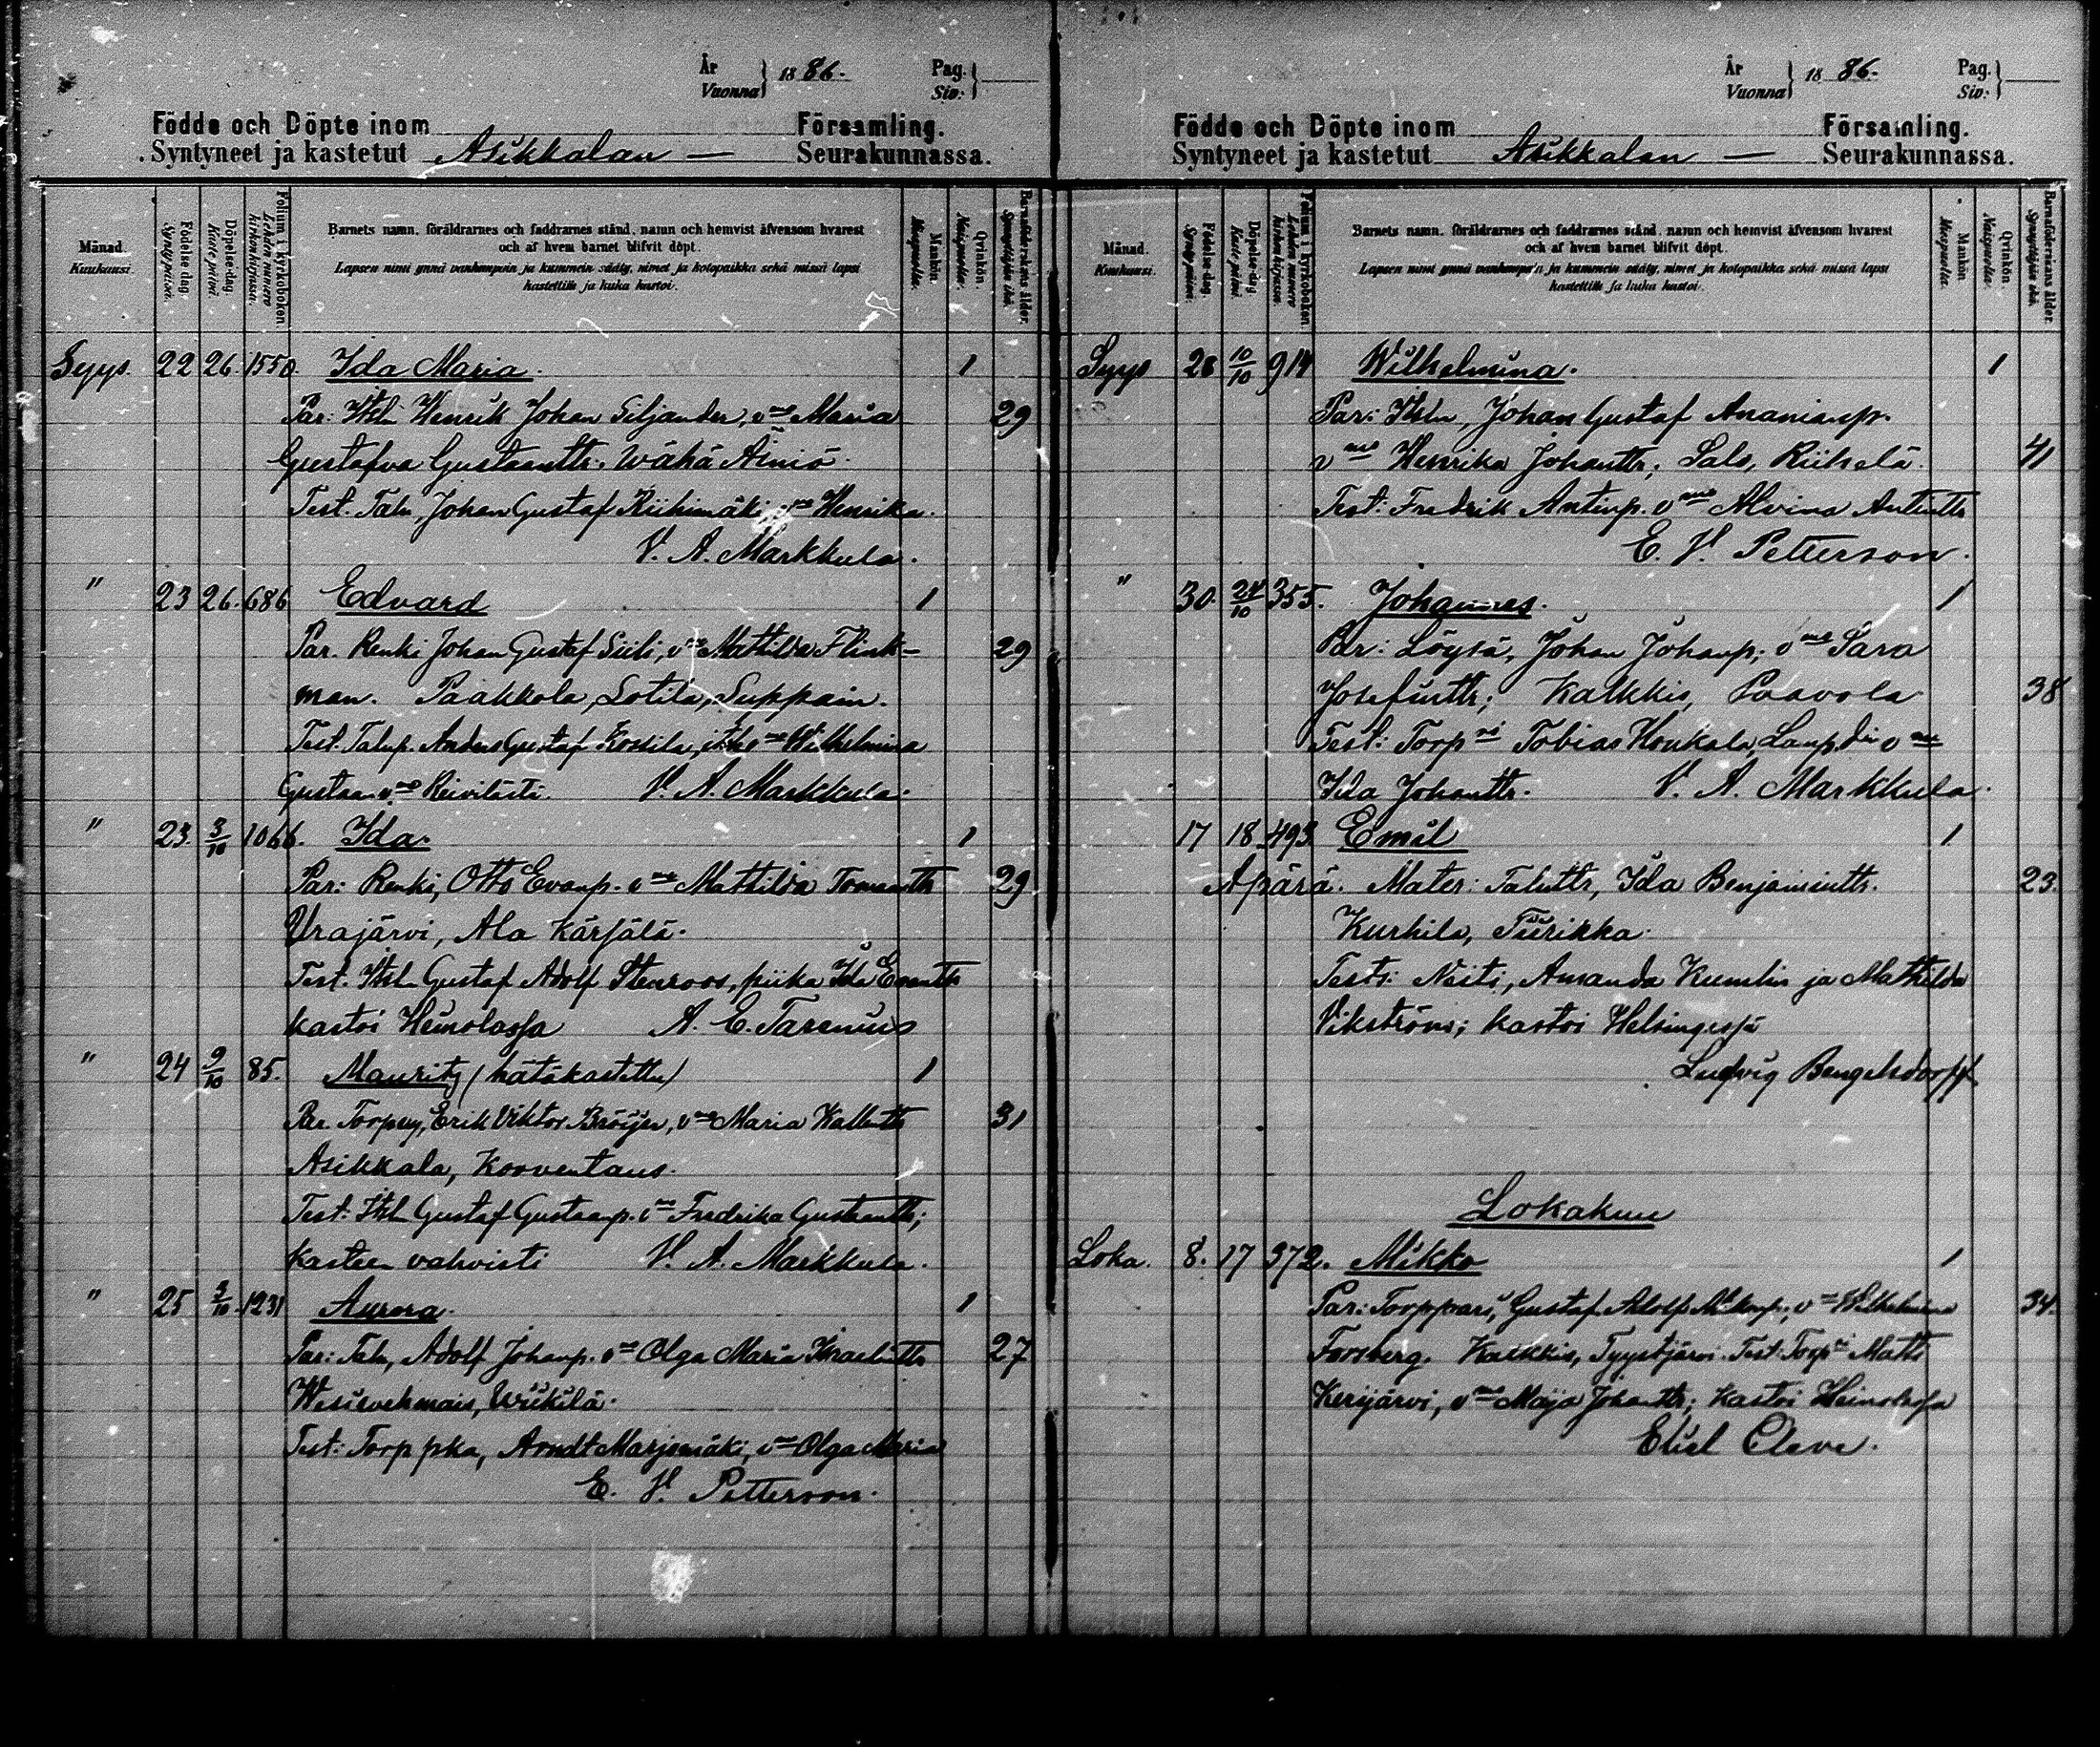 År
Vuonna } 1886. Pag.
Siv: }
Födde och Döpte inom Församling.
Syntyneet ja kastetut Asikkalan — Seurakunnassa.
Månad.
Kuukausi.
Födelse dag.
Syntypäivä.
Döpelse-dag.
Kaste päivä.
Folium i kyrkoboken.
Lehden numero kirkonkirjassa.
Barnets namn, föräldrarnes och faddrarnes stånd, namn och hemvist äfvensom hvarest
och af hvem barnet blifvit döpt.
Lapsen nimi ynnä vanhempain ja kummein sääty, nimet ja kotopaikka sekä missä lapsi
kastettiin ja kuka kastoi.
Mankön.
Miespuolta.
Qvinkön.
Naispuolta.
Barnaföderskans ålder.
Synnyttäjän ikä.
Syys. 22 26. 1550. Ida Maria. 1
Par: Itsln Henrik Johan Seljander, vmo Maria 29
Gustafva Gustaantr. Wähä Äiniö.
Test. Taln, Johan Gustaf Riihimäki vmo Henrika.
V. A. Markkula.
" 23 26. 686 Edvard 1
Par. Renki Johan Gustaf Siili, vmo Mathilda Flink- 29
man. Paakkola, Sotila, Suppain.
Test. Talup. Anders Gustaf Koskila, vmo Wilhelmina
Gustaa vmo V. A. Markkula.
" 23. 3/10 1066. Ida. 1
Par: Renki, Otto Evanp. vmo Mathilda Tomantr 29
Urajärvi, Ala Kärjälä.
Test. Itsln Gustaf Adolf Stenroos, piika Ida Evantr
kastoi Heinolassa A. E. Tarenius
" 24 9/10 85. Mauritz (hätäkastettu) 1
Par. Erik Viktor Bröijer, vmo Maria Kallentr 31
Asikkala, Korventaus.
Test: Itsln Gustaf Gustaap. vmo Fredrika Gustaantr;
kasteen vahvisti V. A. Markkula.
" 25 3/10 1231 Aurora. 1
Par: Taln, Adolf Johanp. vmo Olga Maria Kraelintr 27
Wesivehmais, Urikilä.
Test: Torppka, Arndt Marjamäki, vmo Olga Maria
E. V. Petterson.
År
Vuonna } 1886. Pag.
Siv: }
Födde och Döpte inom Församling.
Syntyneet ja kastetut Asikkalan — Seurakunnassa.
Månad.
Kuukausi.
Födelse-dag.
Syntypäivä.
Döpelse-dag.
Kaste päivä.
Folium i kyrkoboken.
Lehden numero kirkonkirjassa.
Barnets namn, föräldrarnes och faddrarnes stånd, namn och hemvist äfvensom hvarest
och af hvem barnet blifvit döpt.
Lapsen nimi ynnä vanhempain ja kummein sääty, nimet ja kotopaikka sekä missä lapsi
kastettiin ja kuka kastoi.
Mankön.
Miespuolta.
Qvinkön.
Naispuolta.
Barnaföderskans ålder.
Synnyttäjän ikä.
Syys 28 10/10 914 Wilhelmina. 1
Par: Itsln, Johan Gustaf Ananianp.
vmo Henrika Johantr; Salo, Riihelä. 41
Test: Fredrik Antinp. vmo Alvina Antintr
E. V. Petterson.
" 30. 24/10 355. Johannes. 1
Par: Löysä, Johan Johanp; vmo Sara
Josefintr; Kalkkis, Paavola 38
Test: Torpri Tobias Honkala, vmo
Ida Johantr. V. A. Markkula.
17 18 493. Emil 1
Äpärä. Mater: Taluttr, Ida Benjamintr. 23.
Kurhila, Tiirikka.
Tests: Neiti, Amanda Kumlin ja Mathilda
Vikström; kastoi Helsingissä
Ludvig Bengelsdorff
Lokakuu
Loka. 8. 17 372. Mikko 1
Par: Torppari, Gustaf Adolf Mikonp; vmo Wilhelmina 34.
Forsberg. Kalkkis, Tyystjärvi. Test: Torpri Matti
Kerijärvi, vmo Maija Johantr; kastoi Heinolassa
Eliel Cleve.